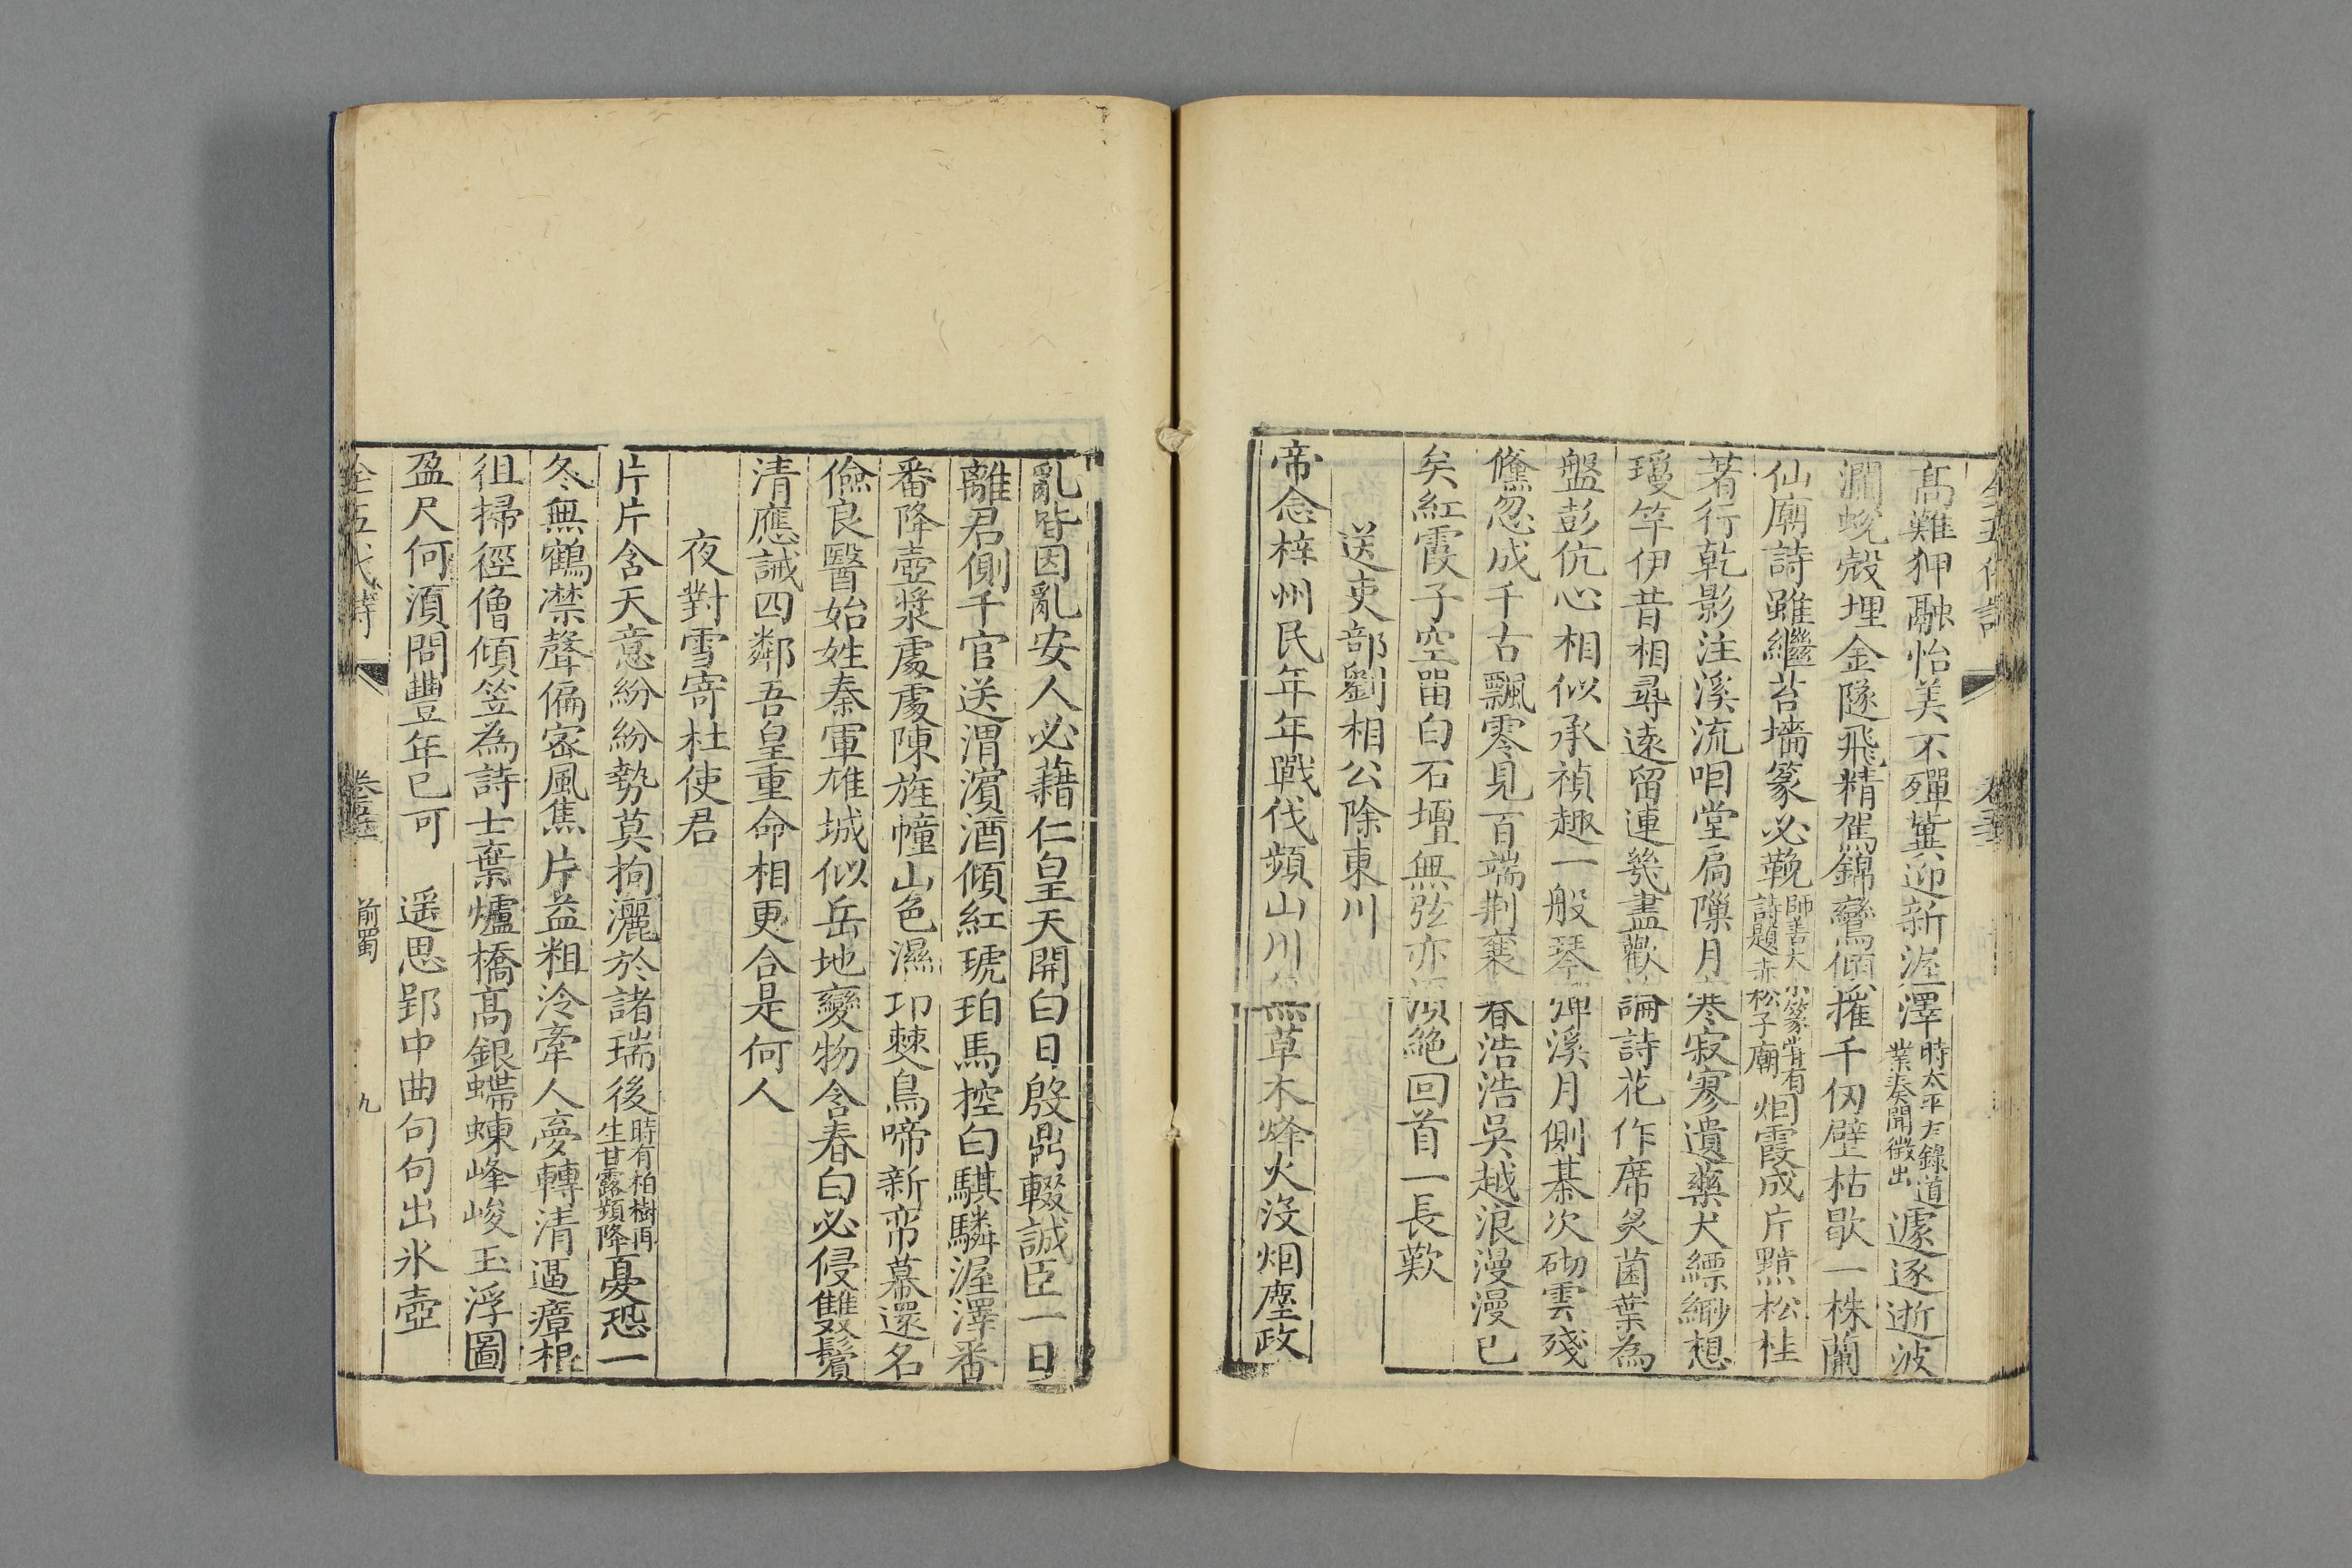 高難狎融怡美不殫冀迎新渥澤時太平左錄道業奏聞徵出遽逐逝波
瀾蛻殼埋金隧飛精駕錦鸞傾摧千仞壁枯歇一株蘭
仙廟詩雖繼苔墻篆必鞔師善大小篆嘗有詩題赤松子廟烟霞成片黯松桂
著行乾影注溪流咽堂扃隟月寒寂寥遺藥犬縹緲想
瓊竿伊昔相尋遠留連幾盡歡論詩花作席炙菌葉為
盤彭伉心相似承禎趣一般琴彈溪月側棊次砌雲殘
儵忽成千古飄零見百端荆襄春浩浩吳越浪漫漫已
矣紅霞子空畱白石壇無弦亦須絕回首一長歎
送吏部劉相公除東川
帝念梓州民年年戰伐頻山川無草木烽火沒烟塵政
亂皆因亂安人必藉仁皇天開白日殷鼎輟誠臣一日
離君側千官送渭濱酒傾紅琥珀馬控白騏驎渥澤番
番降壺漿處處陳旌幢山色濕邛僰鳥啼新帟幕還名
儉良醫始姓秦軍雄城似岳地變物含春白必侵雙鬢
清應誡四鄰吾皇重命相更合是何人
夜對雪寄杜使君
片片含天意紛紛勢莫拘灑於諸瑞後時有柏樹再生甘露頻降憂恐一
冬無鶴凚聲偏密風焦片益粗冷牽人夣轉清逼瘴根
徂掃徑僧傾笠為詩士棄爐橋高銀螮蝀峰峻玉浮圖
盈尺何須問豐年已可 遥思郢中曲句句出氷壺
全五代詩 卷五 前蜀 九